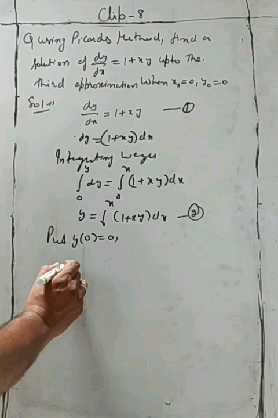 Clip-8
Q using Picardes Method, find a
solution of dy/dx = 1+xy upto the
third approximation when x₀=0, y₀=0
Sol:-
dy/dx = 1+xy —①
dy=(1+xy)dx
Integrating we get
∫₀^y dy = ∫₀^x (1+xy)dx
y = ∫₀^x (1+xy)dx —②
Put y(0)=0,